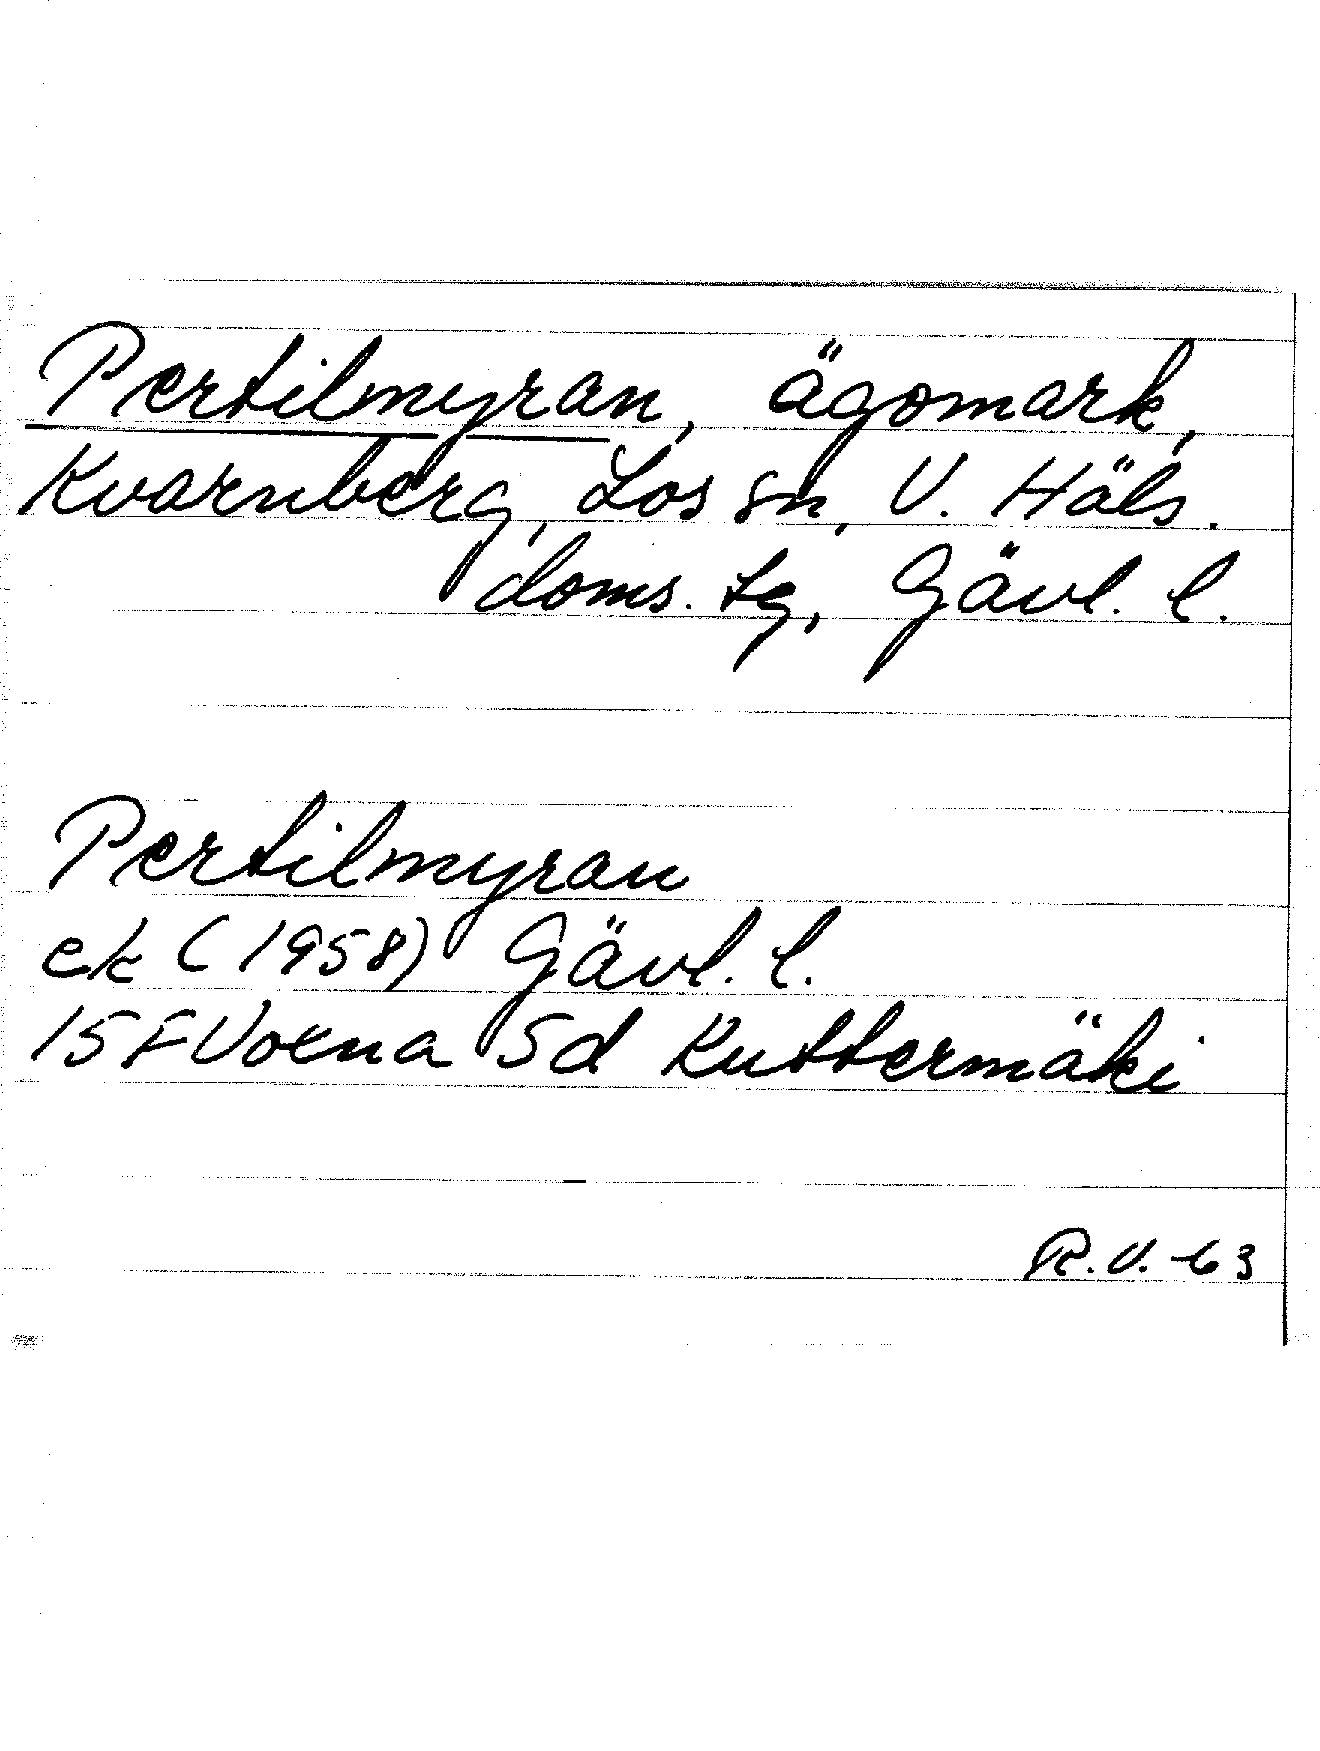 Pertilmyran, ägomark,
Kvarnberg, Los sn, V. Häls.
doms. tg, Gävl. l.
Pertilmyran
ek (1958) Gävl. l.
15F Voxna 5d Kuttermäki
R.V. -63